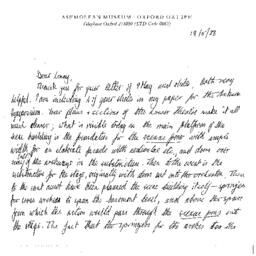 ASHMOLEAN MUSEUM · OXFORD OX1 2PH
Telephone Oxford
Dear Lenny,
Thank you for your letter of 9 May and slides, both very
helpful. I am including 4 of your slides in my paper for the
Symposium. Your plans & sections of the Lower Theatre make it all
much clearer; what is visible today as the main platform of the
scene building is the foundation for the scaenae frons with ample
width for an elaborate facade with columns etc., and doors over
of the archways in the substructure. Then to the west is the
substructure for the stage, originally with doors out into the orchestra. Then
to the east must have been planned the scene building itself - springers
for cross arches to span the basement level, and above the space
from which the actors would pass through the scaenae frons onto
the stage. The fact that the springers for the arches